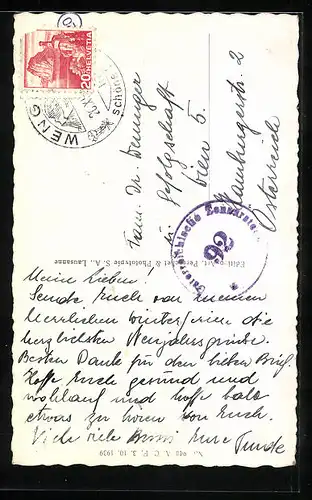 20 HELVETIA
WENGEN
Schöne
Fam. Dr. Wenninger
Gefolgschaft
Wien 5.
Hamburgerstr. 2
Österreich
Österreichische Zensurstelle
92
Edition Art. Perrochet & Phototypie S. A., Lausanne
Meine Lieben!
Sende Euch von meinen
herrlichen Winterferien die
herzlichsten Neujahrsgrüsse.
Besten Dank für den lieben Brief.
Hoffe Euch gesund und
wohlauf und hoffe bald
etwas zu hören von Euch.
Viele viele Bussi Eure
No. A. C. F. 3. 10. 1939